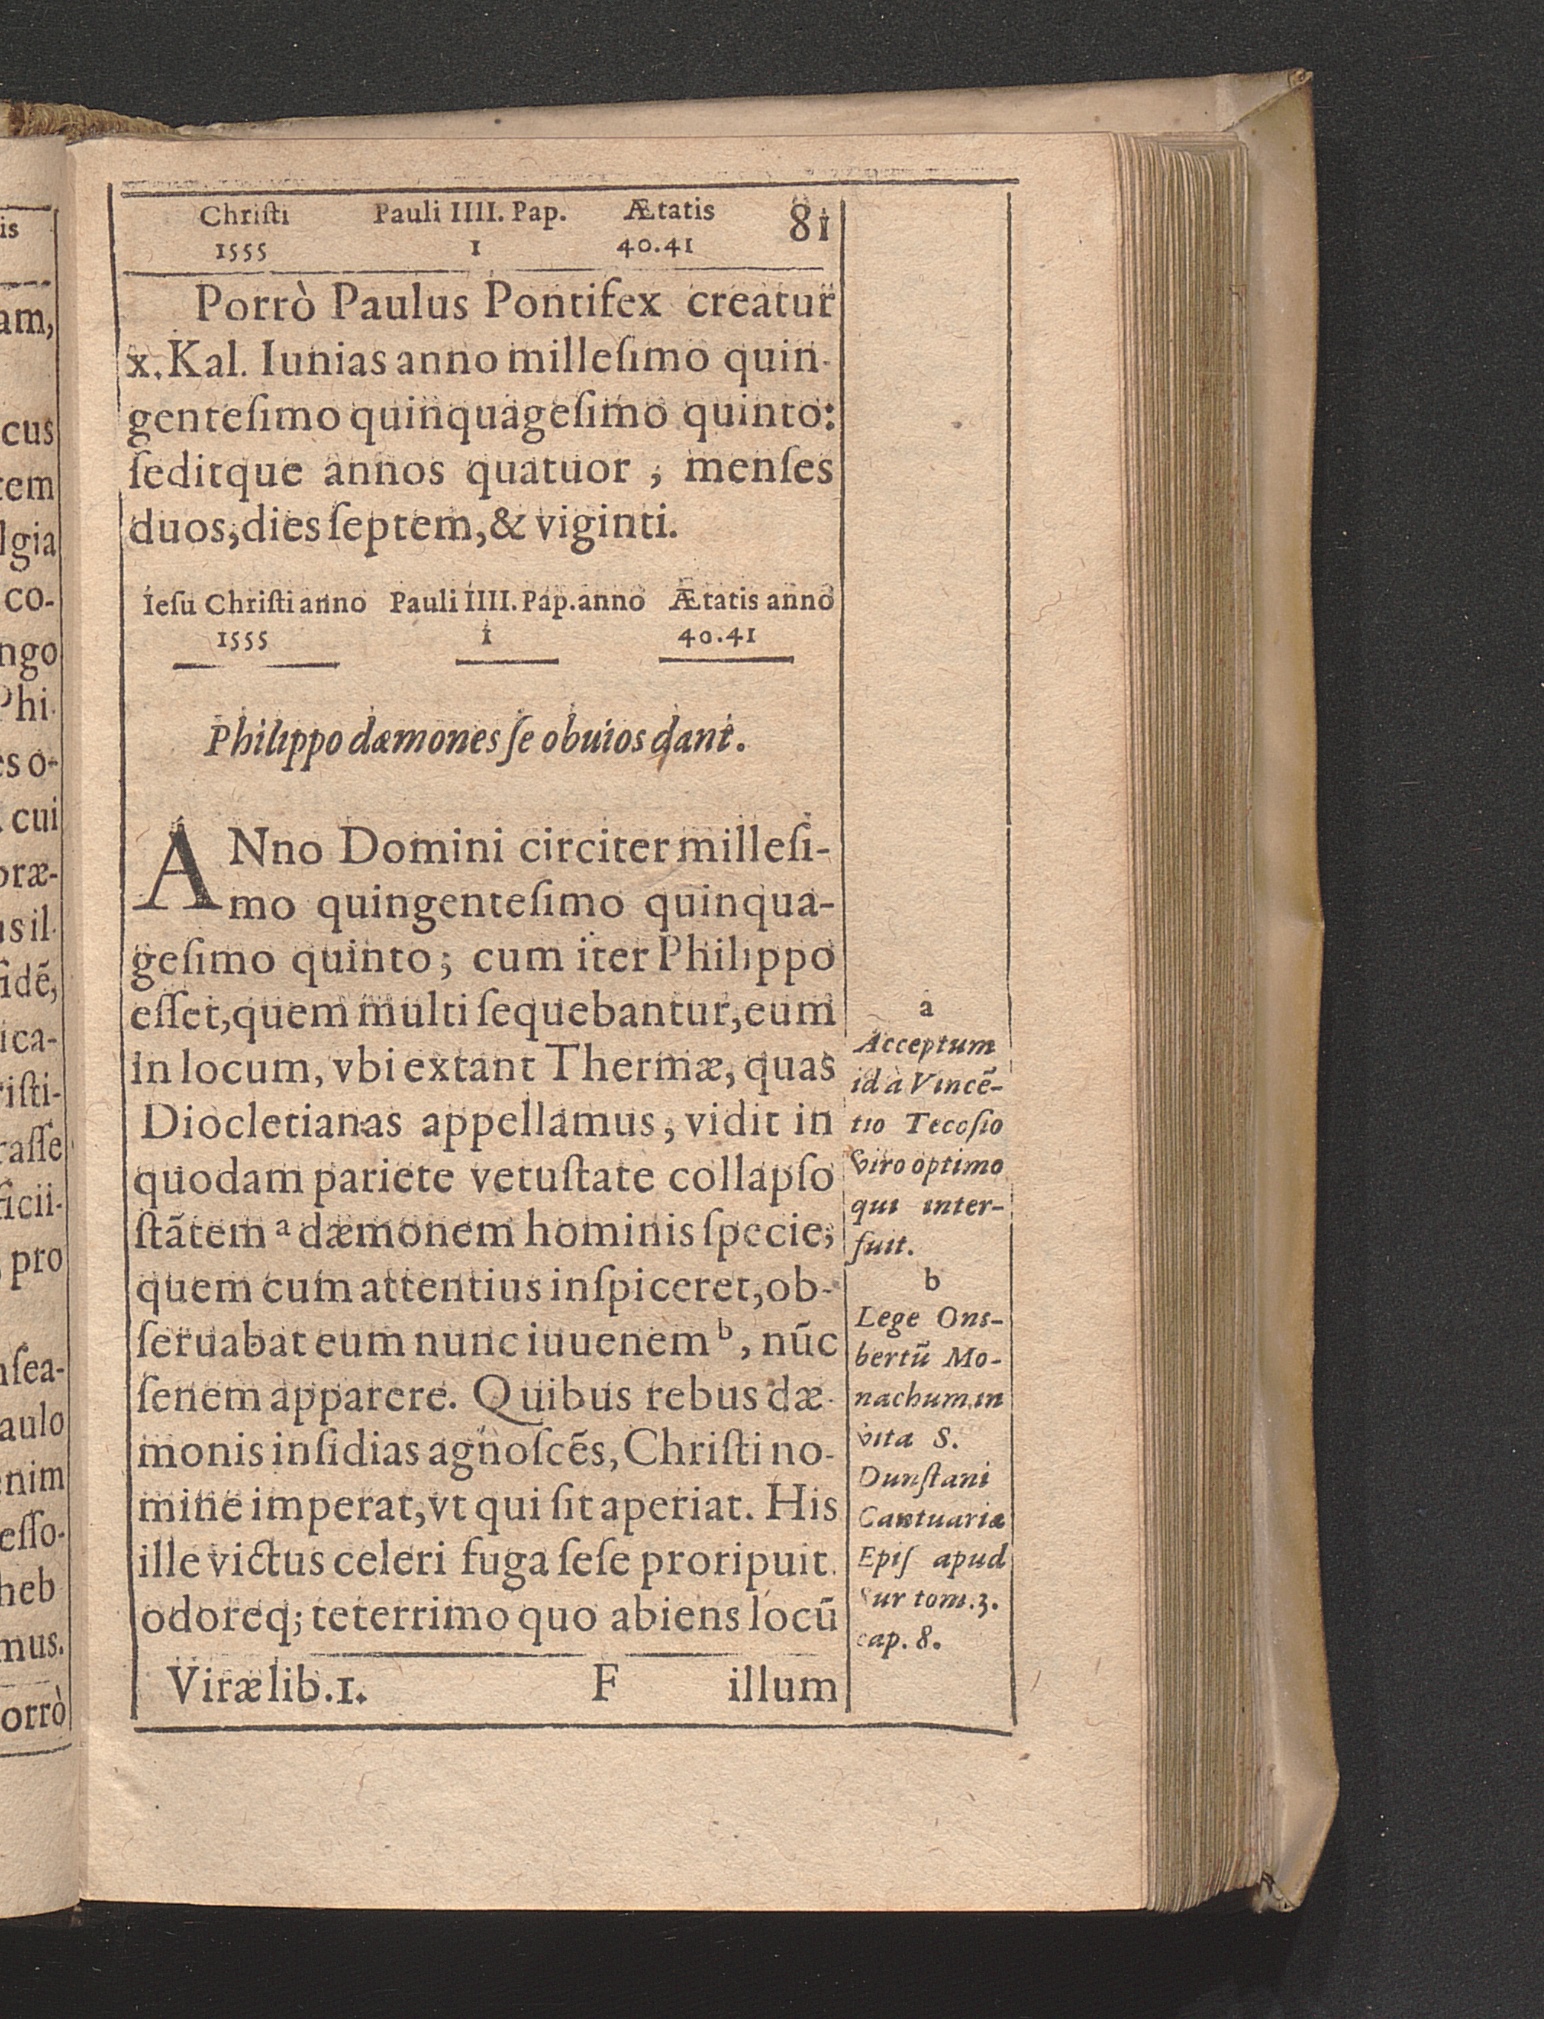 Chriſti Pauli IIII. Pap. Ætatis 81
1555 1 40.41
Porrò Paulus Pontifex creatur
x. Kal. Iunias anno milleſimo quin-
genteſimo quinquageſimo quinto:
ſeditque annos quatuor, menſes
duos, dies ſeptem, & viginti.
Ieſu Chriſti anno Pauli IIII. Pap. anno Ætatis anno
1555 1 40.41
Philippo dæmones ſe obuios dant.
ANno Domini circiter milleſi-
mo quingenteſimo quinqua-
geſimo quinto; cum iter Philippo
eſſet, quem multi ſequebantur, eum
in locum, vbi extant Thermæ, quas
Diocletianas appellamus, vidit in
quodam pariete vetuſtate collapſo
ſtãtem a dæmonem hominis ſpecie;
quem cum attentius inſpiceret, ob-
ſeruabat eum nunc iuuenem b, nũc
ſenem apparere. Quibus rebus dæ-
monis inſidias agnoſcẽs, Chriſti no-
mine imperat, vt qui ſit aperiat. His
ille victus celeri fuga ſeſe proripuit.
odoreq; teterrimo quo abiens locũ
Vitæ lib. 1. F illum
a
Acceptum
id à Vincẽ-
tio Tecoſio
viro optimo
qui inter-
fuit.
b
Lege Ons-
bertũ Mo-
nachum in
vita S.
Dunſtani
Cantuariæ
Epiſ apud
Sur tom. 3.
cap. 8.
is
am,
cus
tem
lgia
co-
ngo
Phi-
es o-
cui
præ-
us il-
fidẽ,
ica-
riſti-
raſſe
ficii-
pro
nſea-
aulo
enim
eſſo-
heb
mus.
orrò